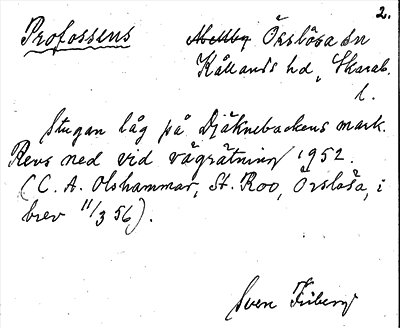 2.
Profossens ~~Mellby~~ Örslösa sn
Kållands hd, Skarab.
l.
Stugan låg på Djäknebackens mark.
Revs ned vid vägrätning 1952.
(C. A. Olshammar, St. Roo, Örslösa, i
brev 11/3 56).
Sven Friberg